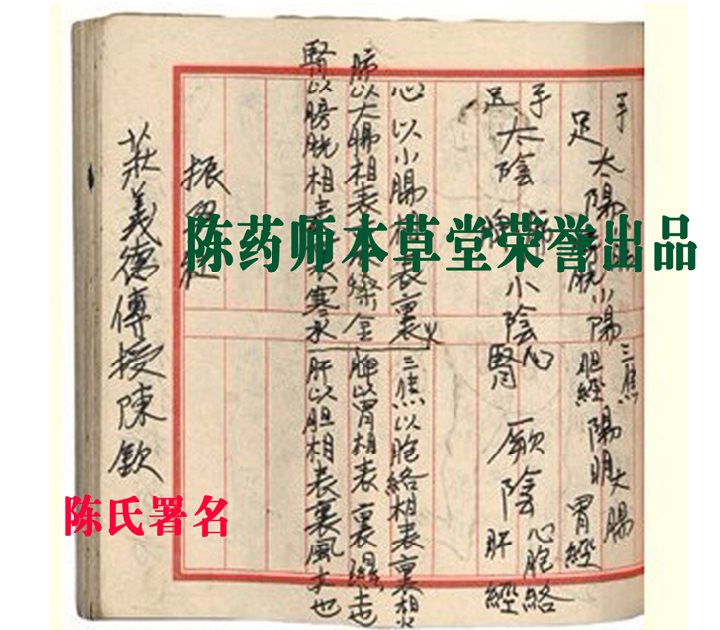 手足太陽小陽三焦胆經陽明大腸胃經
手足太陰小陰心腎厥陰心胞絡肝經
心以小腸相表裏火三焦以胞絡相表裏相火
肺以大腸相表燥金脾以胃相表裏
腎以膀胱相表寒水肝以胆相表裏風木也
振
莊義德傅授陳欽
陈药师本草堂荣誉出品
陈氏署名